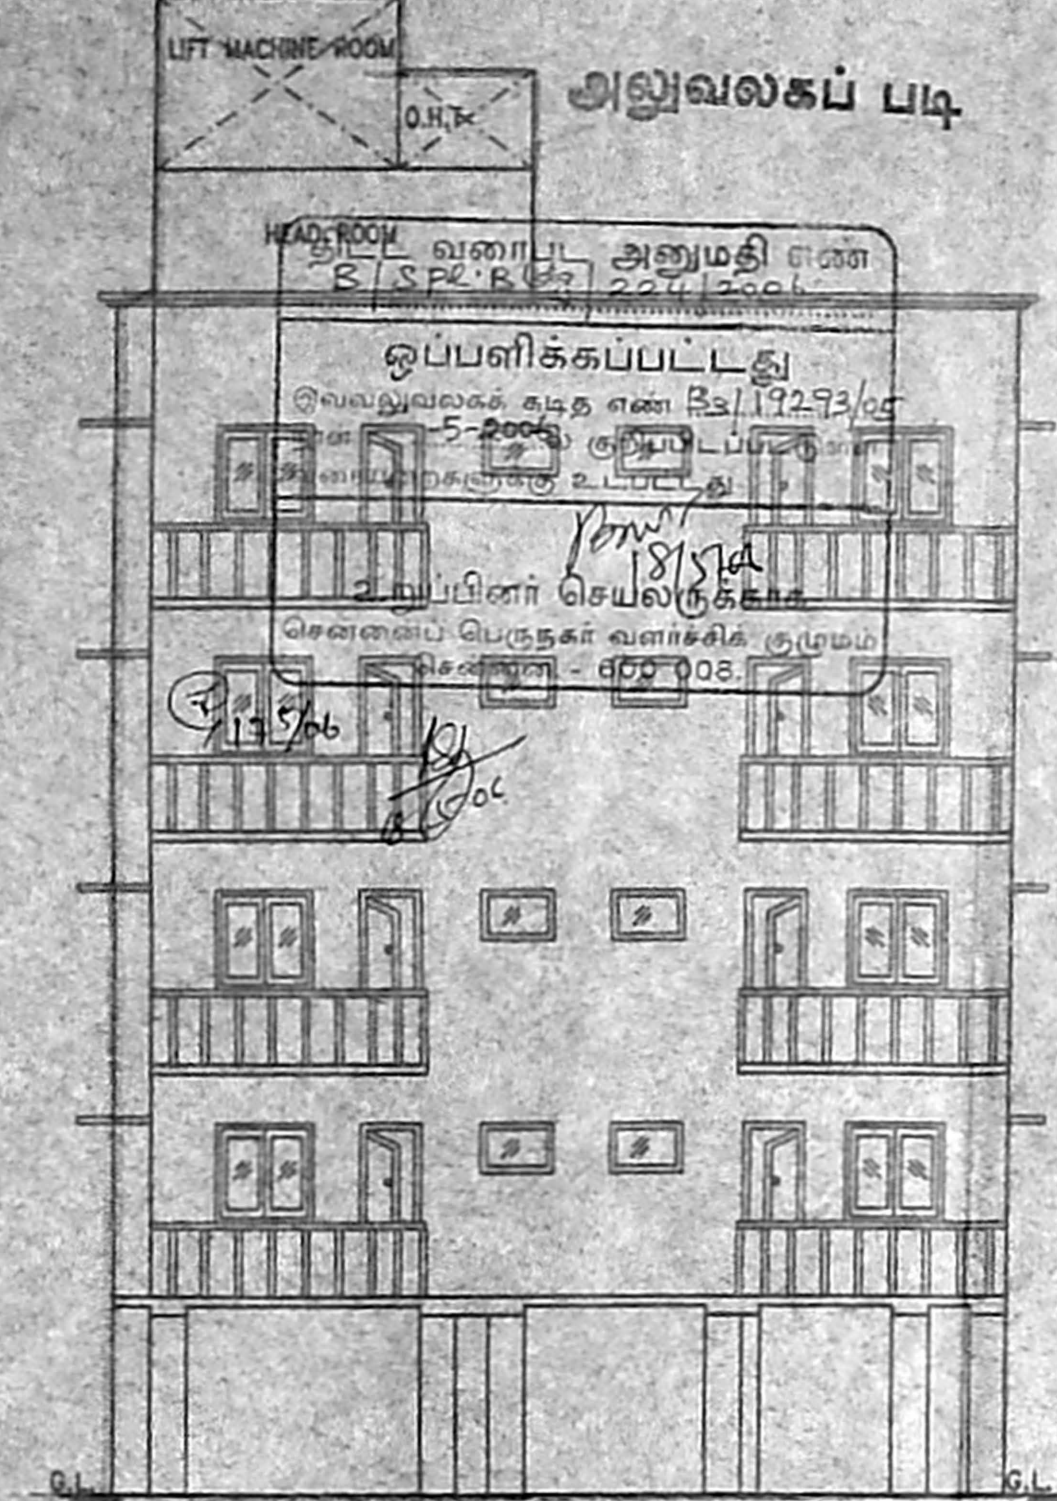 LIFT MACHINE ROOM
அலுவலகப் படி
O.H.T.
HEAD ROOM
திட்ட வரைபட அனுமதி எண்
B / Spl. Bldg / 224 / 2006
ஒப்பளிக்கப்பட்டது
இவ்வலுவலகக் கடித எண் B3/19293/05
நாள் -5-2006ல் குறிப்பிடப்பட்டுள்ள
வரையறைகளுக்கு உட்பட்டது
18/5/06
உறுப்பினர் செயலருக்காக
சென்னைப் பெருநகர் வளர்ச்சிக் குழுமம்
சென்னை - 600 008.
17/5/06
G.L.
G.L.